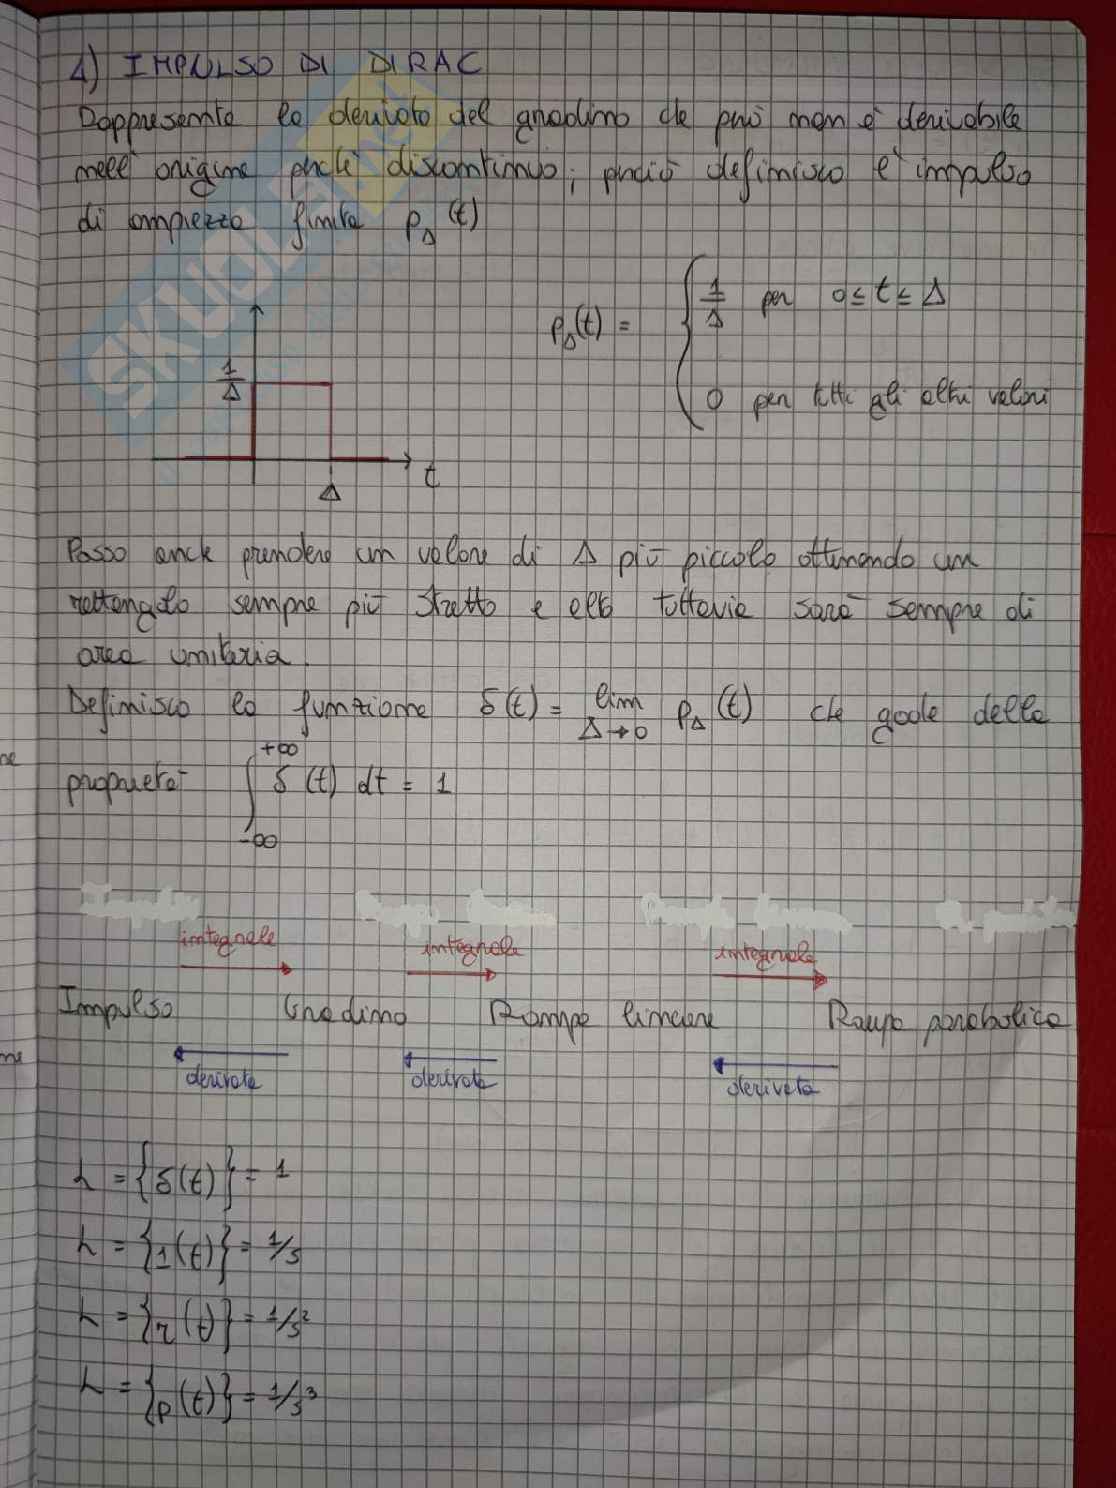 4) IMPULSO DI DIRAC
Rappresenta la derivata del gradino che però non è derivabile
nell'origine perchè discontinuo; perciò definisco l'impulso
di ampiezza finita p_Δ(t)
1/Δ
t
Δ
p_Δ(t) = { 1/Δ per 0≤t≤Δ
0 per tutti gli altri valori
Posso anche prendere un valore di Δ più piccolo ottenendo un
rettangolo sempre più stretto e alto tuttavia sarà sempre di
area unitaria.
Definisco la funzione δ(t) = lim Δ→0 p_Δ(t) che gode della
proprietà ∫_{-∞}^{+∞} δ(t) dt = 1
integrale integrale integrale
Impulso Gradino Rampa lineare Rampa parabolica
derivata derivata derivata
L = {δ(t)} = 1
L = {1(t)} = 1/s
L = {r(t)} = 1/s²
L = {p(t)} = 1/s³
SKUOLA.net